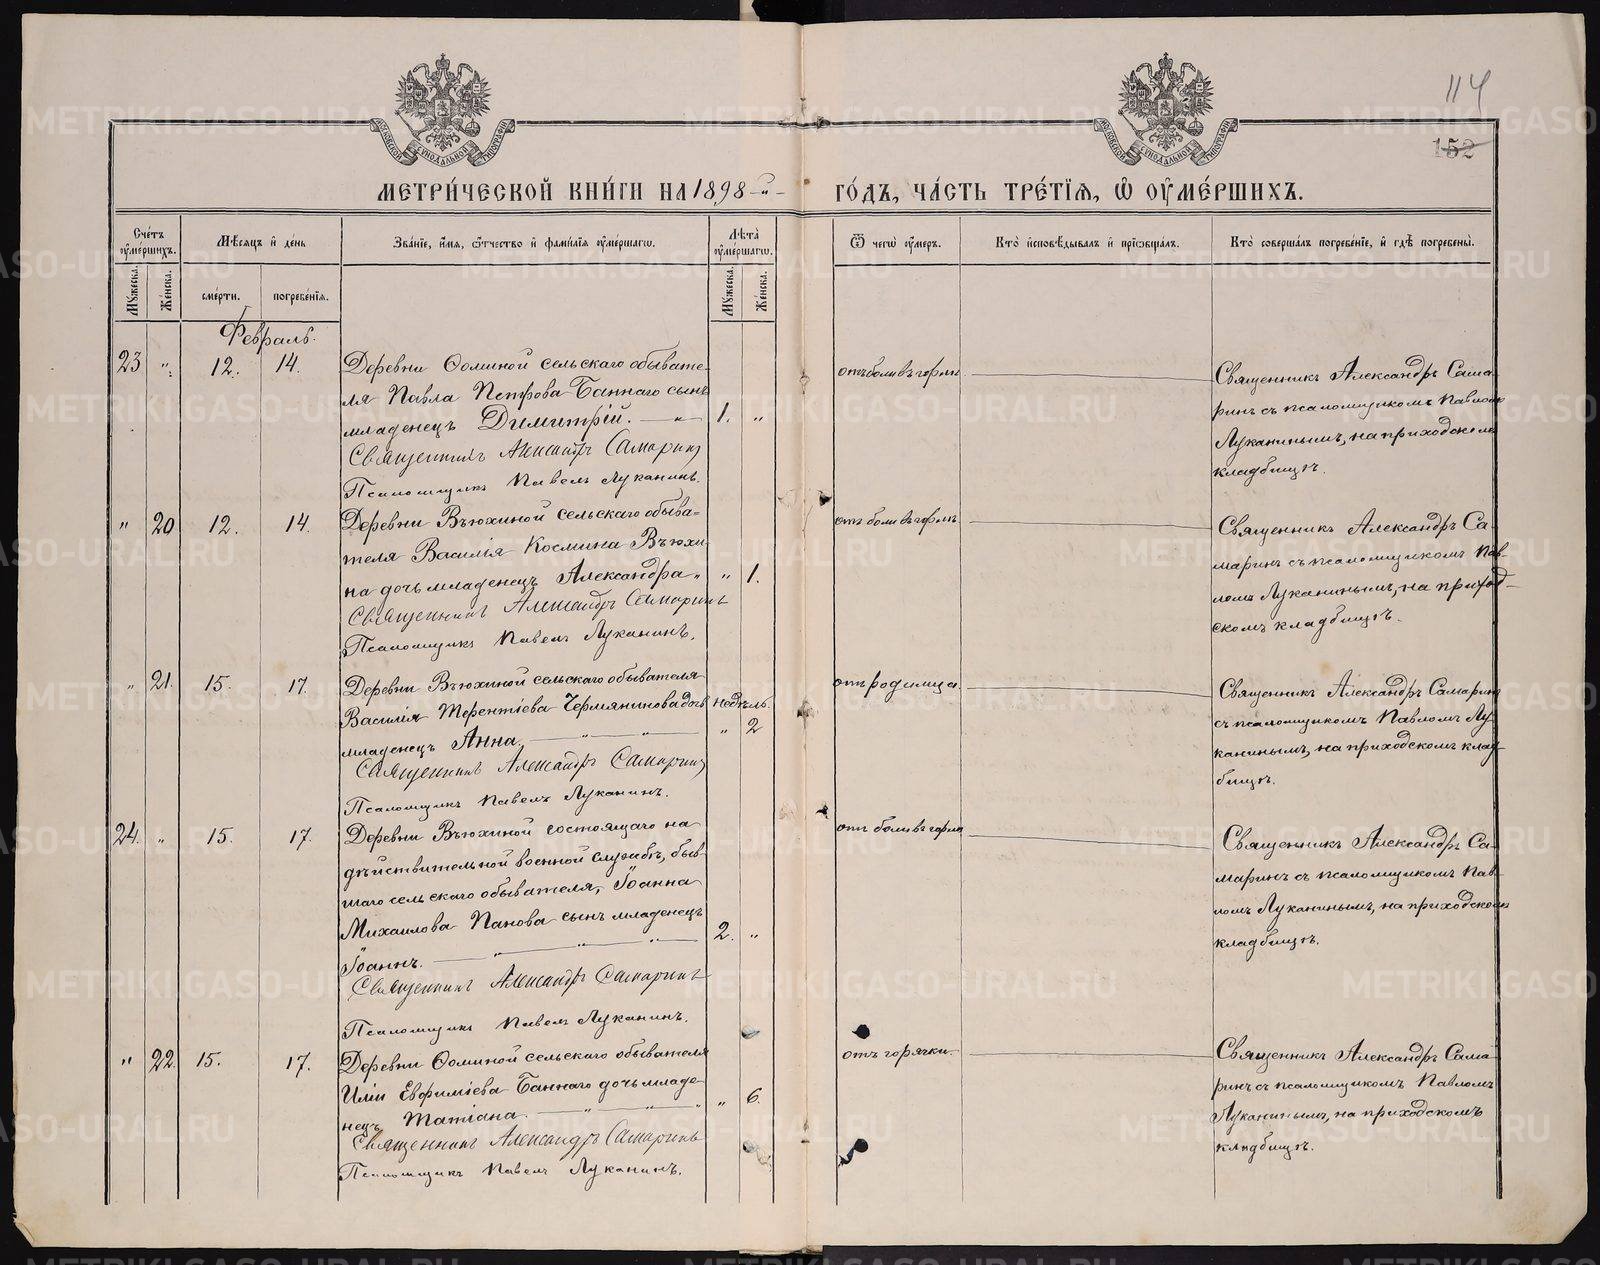 114
152
МЕТРИ́ЧЕСКОЙ КНИ́ГИ НА 1898-й
ГО́ДЪ, ЧА́СТЬ ТРЕ́ТІѦ, Ѡ҆ ОУ҆МЕ́РШИХЪ.
Сче́тъ оу҆ме́ршихъ.
Мѣ́сяцъ и҆ де́нь
Зва́ніе, и҆́мя, ѻ҆́тчество и҆ фами́лія оу҆ме́ршагѡ.
Лѣ́та оу҆ме́ршагѡ.
Ѿ чегѡ̀ оу҆́меръ.
Кто̀ и҆сповѣ́дывалъ и҆ прїѡбща́лъ.
Кто̀ соверша́лъ погребе́ніе, и҆ гдѣ̀ погребены̀.
Мꙋ́жеска.
Же́нска.
сме́рти.
погребе́нія.
Мꙋ́жеска.
Же́нска.
Февраль.
23 „ 12. 14.
Деревни Ѳоминой сельскаго обывате-
ля Павла Петрова Баннаго сынъ
младенецъ Димитрій. 1. „
Священникъ Александръ Самаринъ
Псаломщикъ Павелъ Луканинъ.
отъ боли въ горлѣ.
Священникъ Александръ Сама-
ринъ съ псаломщикомъ Павломъ
Луканинымъ, на приходскомъ
кладбищѣ.
„ 20 12. 14.
Деревни Вьюхиной сельскаго обыва-
теля Василія Космина Вьюхи-
на дочь младенецъ Александра „ „ 1.
Священникъ Александръ Самаринъ
Псаломщикъ Павелъ Луканинъ.
отъ боли въ горлѣ.
Священникъ Александръ Са-
маринъ съ псаломщикомъ Пав-
ломъ Луканинымъ, на приход-
скомъ кладбищѣ.
„ 21. 15. 17.
Деревни Вьюхиной сельскаго обывателя
Василія Терентіева Чермянинова дочь недѣль.
младенецъ Анна. „ 2
Священникъ Александръ Самаринъ
Псаломщикъ Павелъ Луканинъ.
отъ родимца.
Священникъ Александръ Самаринъ
съ псаломщикомъ Павломъ Лу-
канинымъ, на приходскомъ клад-
бищѣ.
24. „ 15. 17.
Деревни Вьюхиной состоящаго на
дѣйствительной военной службѣ, быв-
шаго сельскаго обывателя, Іоанна
Михаилова Панова сынъ младенецъ
Іоаннъ. 2. „
Священникъ Александръ Самаринъ
Псаломщикъ Павелъ Луканинъ.
отъ боли въ горлѣ
Священникъ Александръ Са-
маринъ съ псаломщикомъ Пав-
ломъ Луканинымъ, на приходскомъ
кладбищѣ.
„ 22. 15. 17.
Деревни Ѳоминой сельскаго обывателя
Иліи Евфиміева Баннаго дочь младе-
нецъ Татіана. „ 6.
Священникъ Александръ Самаринъ
Псаломщикъ Павелъ Луканинъ.
отъ горячки.
Священникъ Александръ Сама-
ринъ съ псаломщикомъ Павломъ
Луканинымъ, на приходскомъ
кладбищѣ.
METRIKI.GASO-URAL.RU